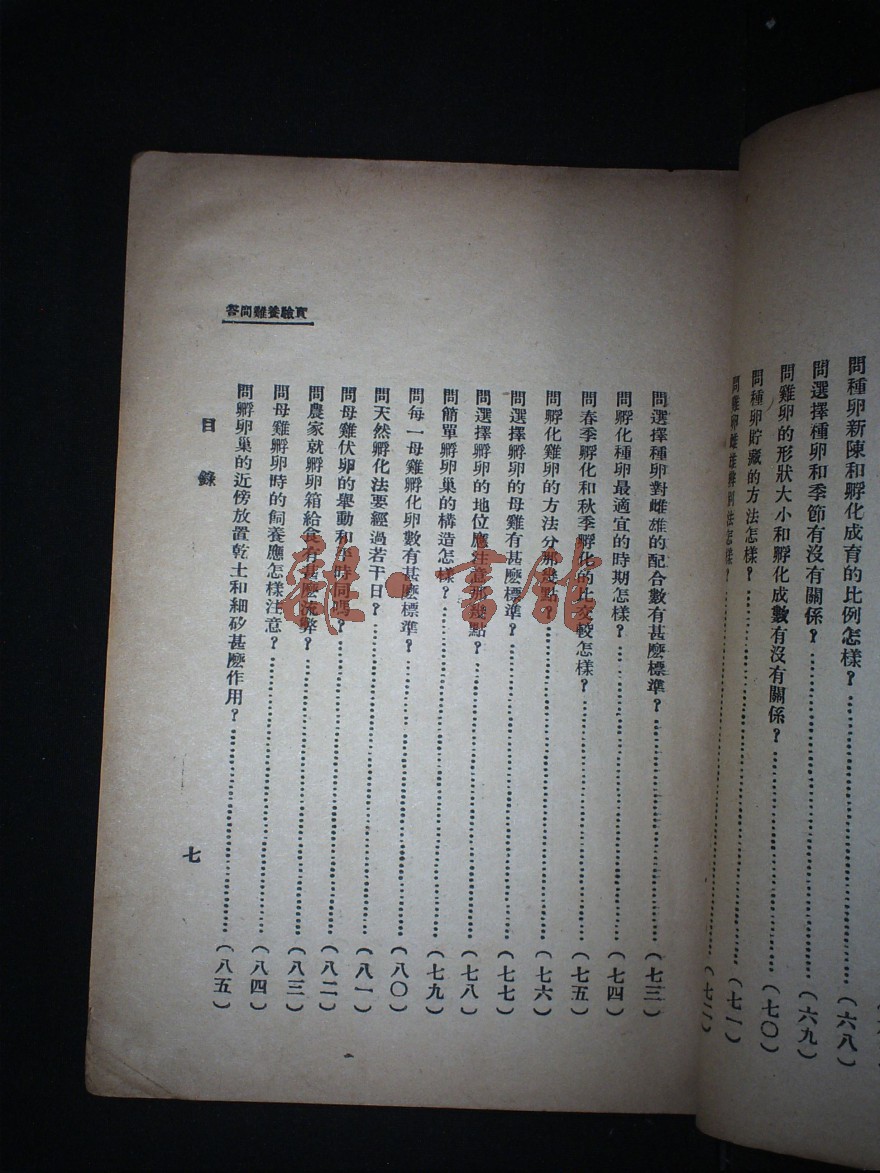 問種卵新陳和孵化成育的比例怎樣?……(六八)
問選擇種卵和季節有沒有關係?……(六九)
問雞卵的形狀大小和孵化成數有沒有關係?……(七〇)
問種卵貯藏的方法怎樣?……(七一)
問雞卵雌雄辨別法怎樣?……(七二)
實驗養雞問答
問選擇種卵對雌雄的配合數有甚麽標準?……(七三)
問孵化種卵最適宜的時期怎樣?……(七四)
問春季孵化和秋季孵化的比較怎樣?……(七五)
問孵化雞卵的方法分那幾點?……(七六)
問選擇孵卵的母雞有甚麽標準?……(七七)
問選擇孵卵的地位應注意那幾點?……(七八)
問簡單孵卵巢的構造怎樣?……(七九)
問每一母雞孵化卵數有甚麽標準?……(八〇)
問天然孵化法要經過若干日?……(八一)
問母雞伏卵的舉動和平時同嗎?……(八二)
問農家就孵卵箱給食有甚麽流弊?……(八三)
問母雞孵卵時的飼養應怎樣注意?……(八四)
問孵卵巢的近傍放置乾土和細砂甚麽作用?……(八五)
目錄
七